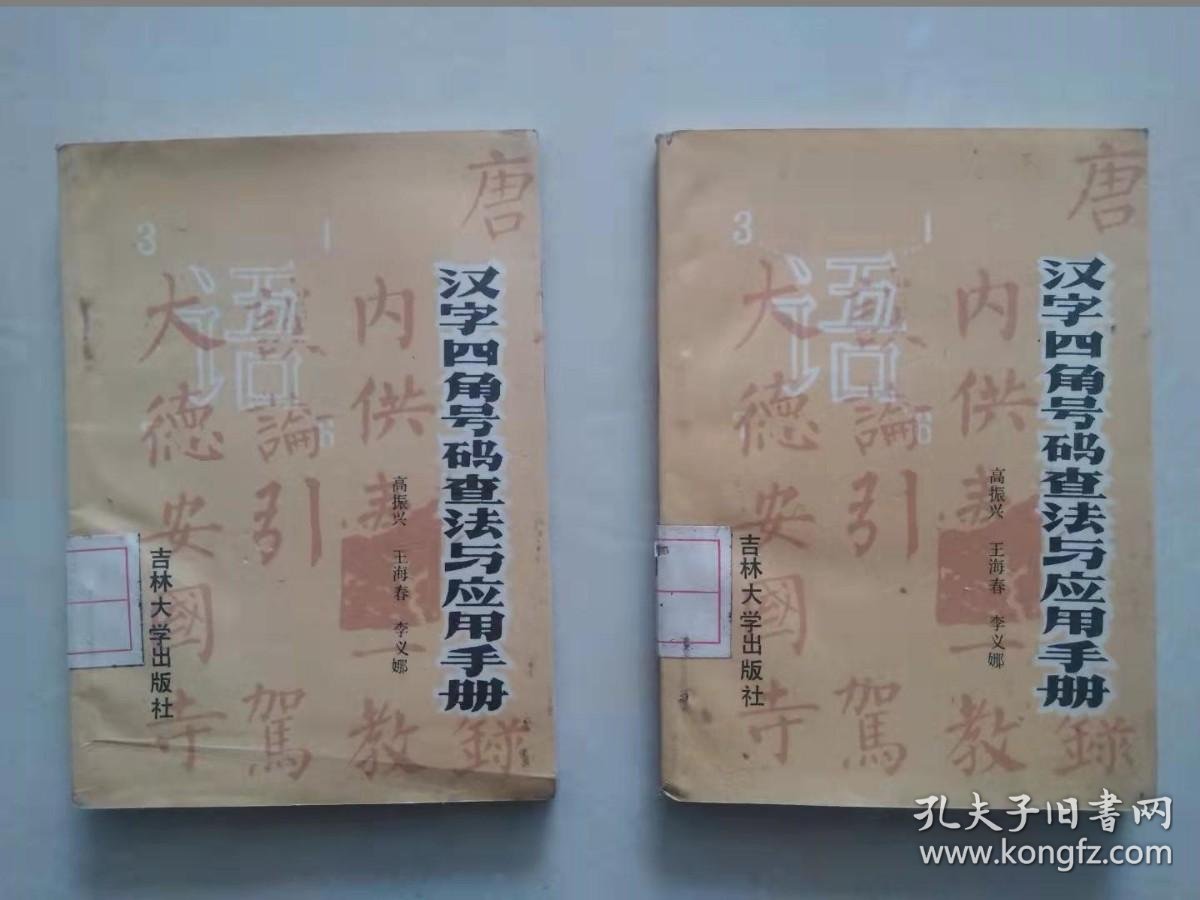 汉字四角号码查法与应用手册
高振兴 王海春 李义娜
吉林大学出版社
唐
錄
内供奉
教
論引
駕
大德安國寺
語
3
1
6
汉字四角号码查法与应用手册
高振兴 王海春 李义娜
吉林大学出版社
唐
錄
内供
教
論引
駕
大德安國寺
語
3
1
6
孔夫子旧书网
www.kongfz.com